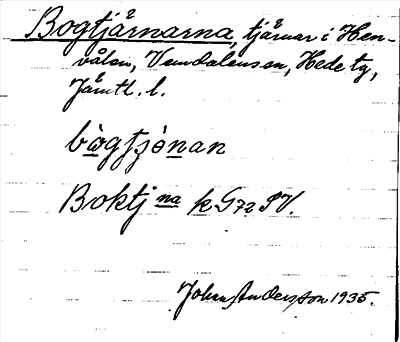 Bogtjärnarna, tjärnar i Hen-
vålen, Vemdalens sn, Hede tg,
Jämtl. l.
bògtjènan
Boktj na k G72 SV.
Johan Andersson 1935.